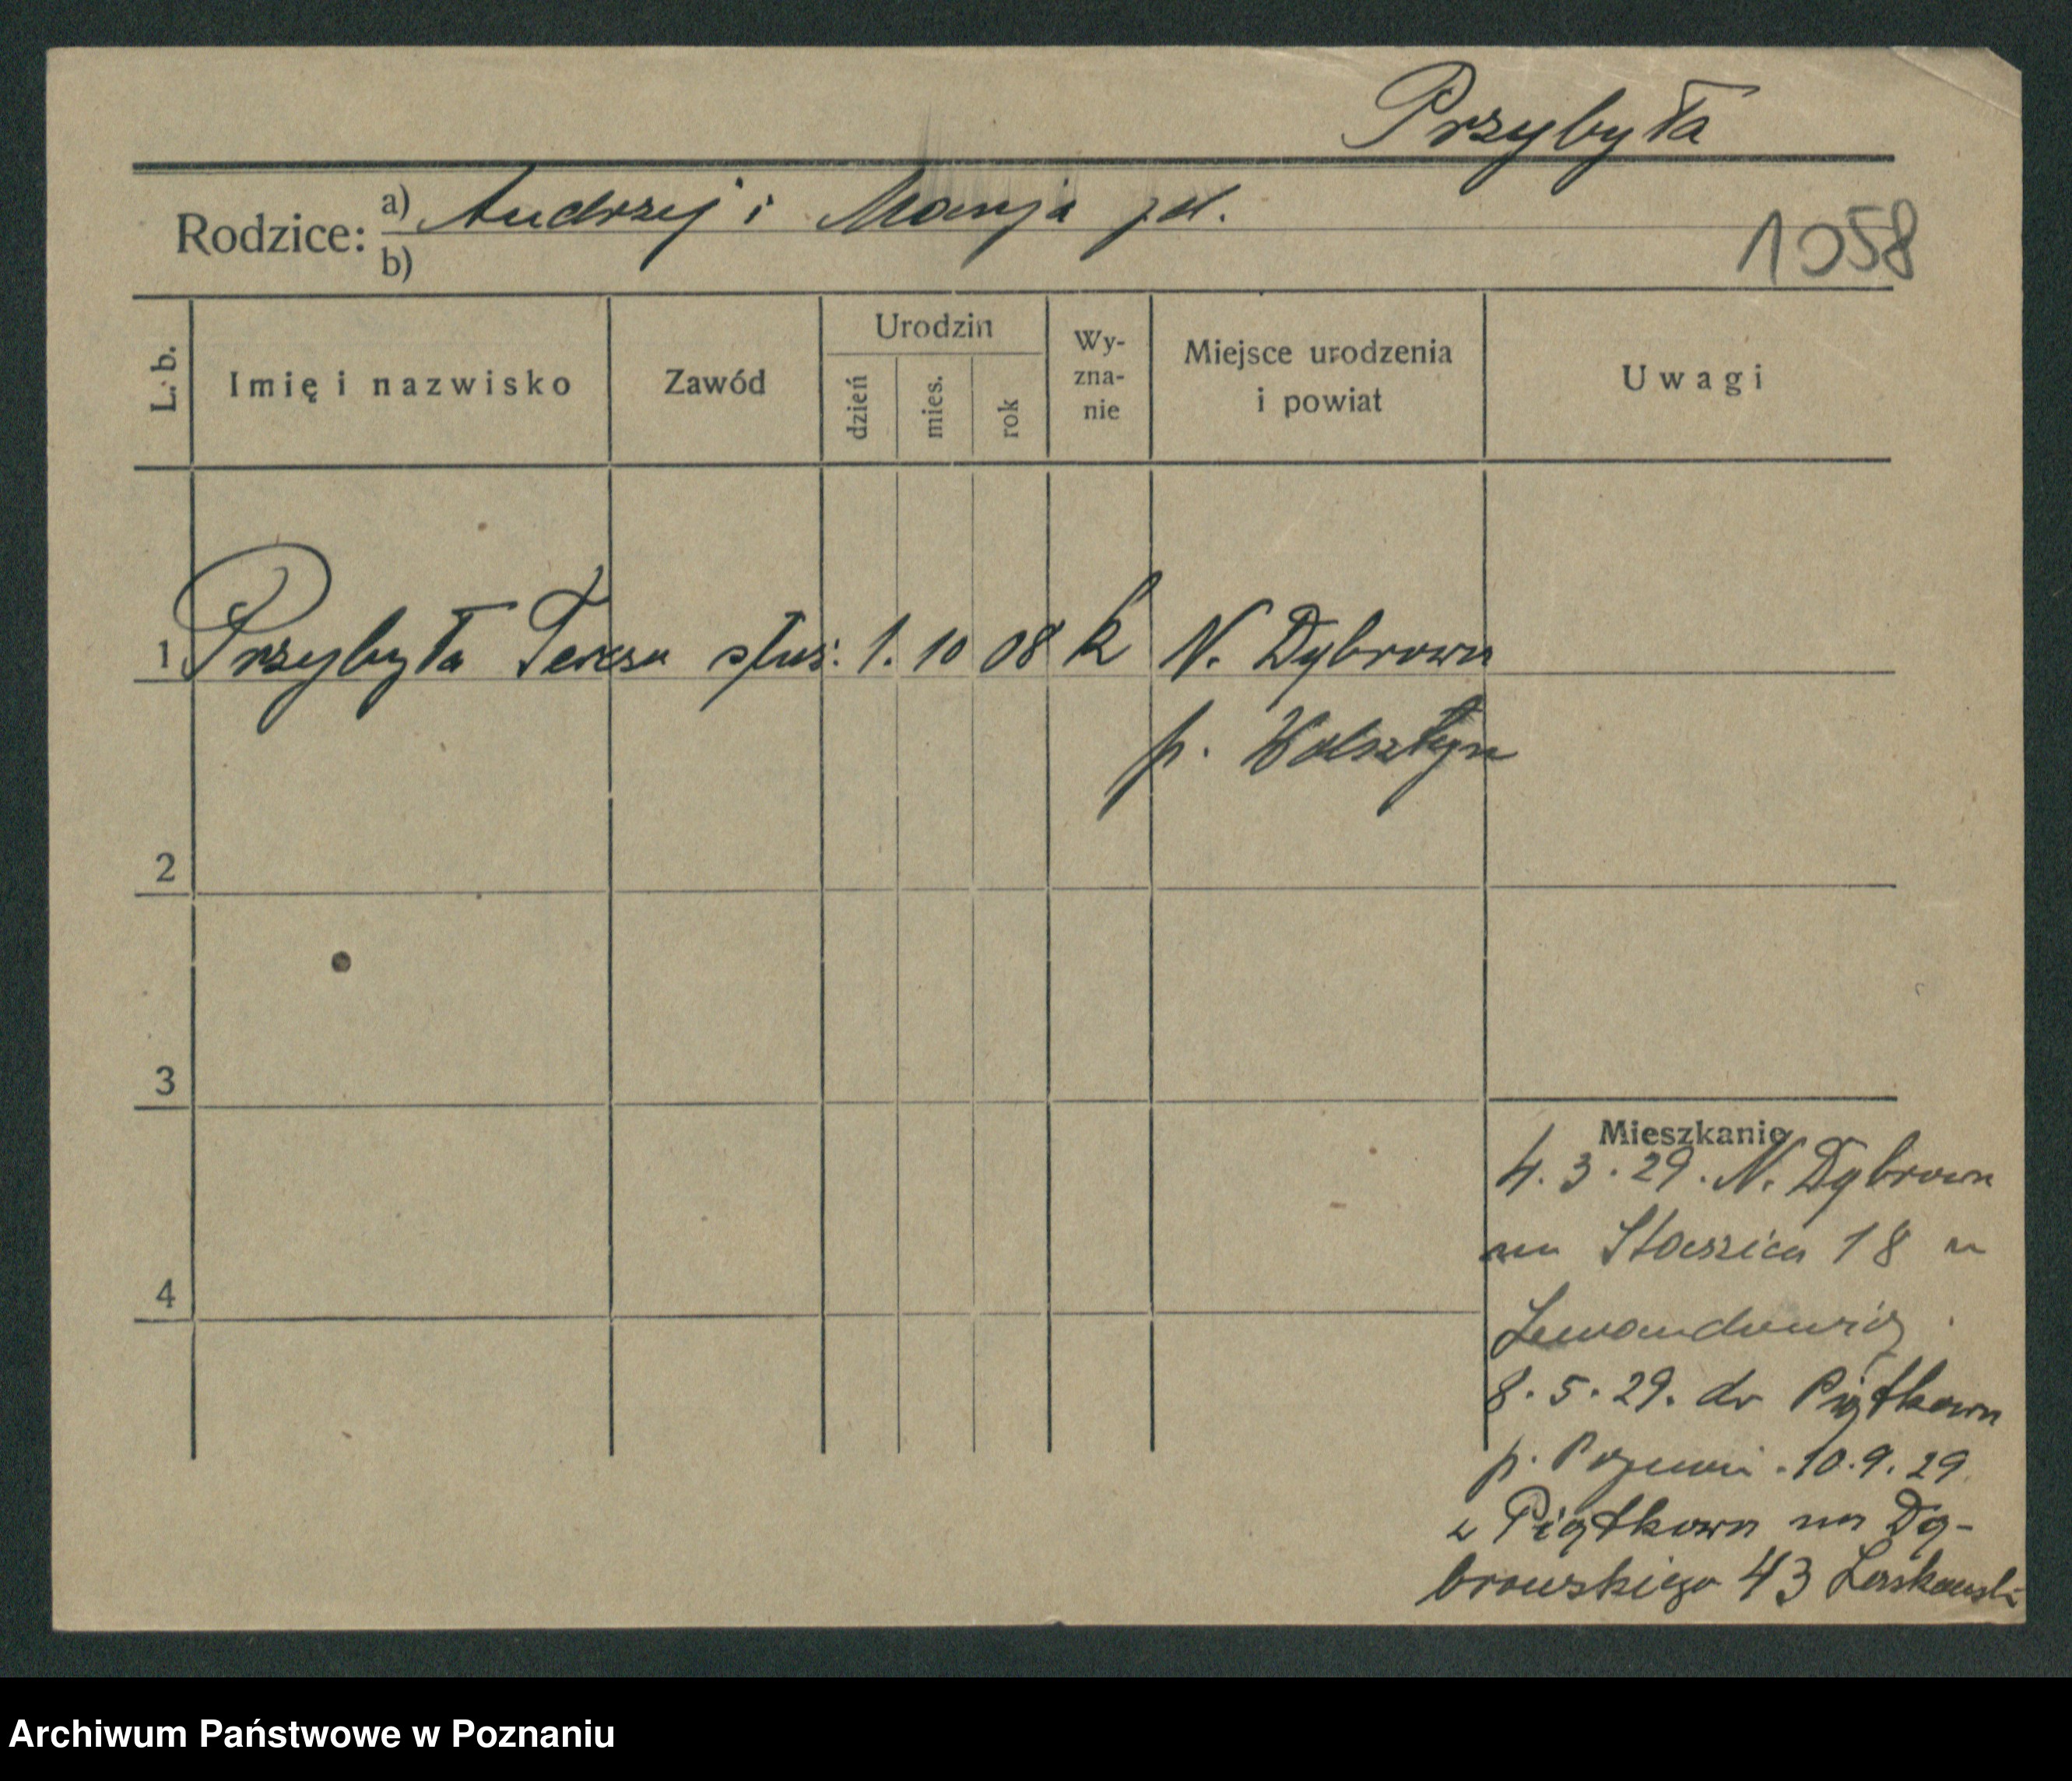 Przybyła
Rodzice: a) Andrzej i Marja jd.
b)
1058
L. b.
Imię i nazwisko
Zawód
Urodzin
dzień
mies.
rok
Wy-
zna-
nie
Miejsce urodzenia
i powiat
Uwagi
1 Przybyła Teresa służ. 1. 10 08 k N. Dąbrowa
p. Wolsztyn
2
3
4
Mieszkanie
4.3.29. N. Dąbrowa
na Staszica 18 u
8.5.29. do Piątkowa
p. Poznań. 10.9.29
z Piątkowa na Dą-
browskiego 43 Laskowski
Archiwum Państwowe w Poznaniu